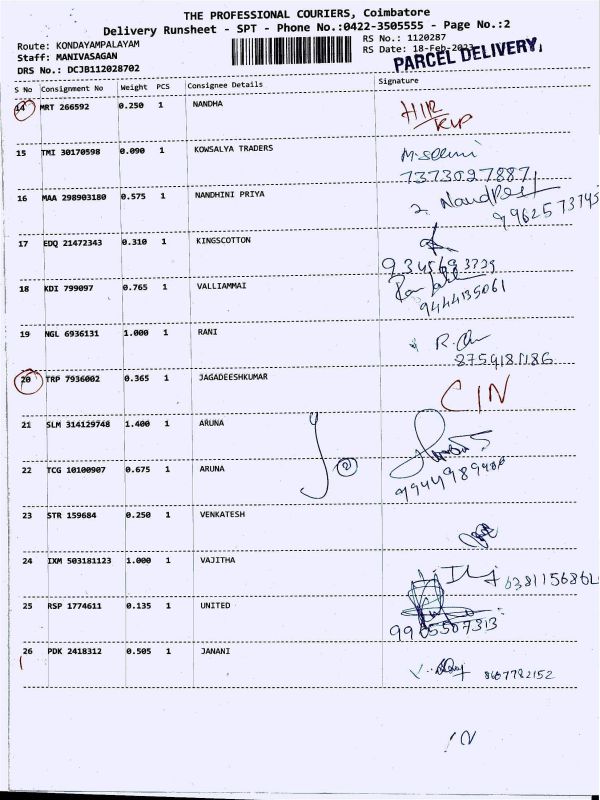 THE PROFESSIONAL COURIERS, Coimbatore
Delivery Runsheet - SPT - Phone No.:0422-3505555 - Page No.:2
Route: KONDAYAMPALAYAM
RS No.: 1120287
Staff: MANIVASAGAN
RS Date: 18-Feb-2023
DRS No.: DCJB112028702
PARCEL DELIVERY
S No Consignment No Weight PCS Consignee Details Signature
14 MRT 266592 0.250 1 NANDHA
15 TMI 30170598 0.090 1 KOWSALYA TRADERS
7373027887
16 MAA 298903180 0.575 1 NANDHINI PRIYA
9962573745
17 EDQ 21472343 0.310 1 KINGSCOTTON
9345693729
18 KDI 799097 0.765 1 VALLIAMMAI
9444135061
19 NGL 6936131 1.000 1 RANI
8759181186
20 TRP 7936002 0.365 1 JAGADEESHKUMAR
CIN
21 SLM 314129748 1.400 1 ARUNA
22 TCG 10100907 0.675 1 ARUNA
2
23 STR 159684 0.250 1 VENKATESH
24 IXM 503181123 1.000 1 VAJITHA
25 RSP 1774611 0.135 1 UNITED
9965507313
26 PDK 2418312 0.505 1 JANANI
8667782152
IN